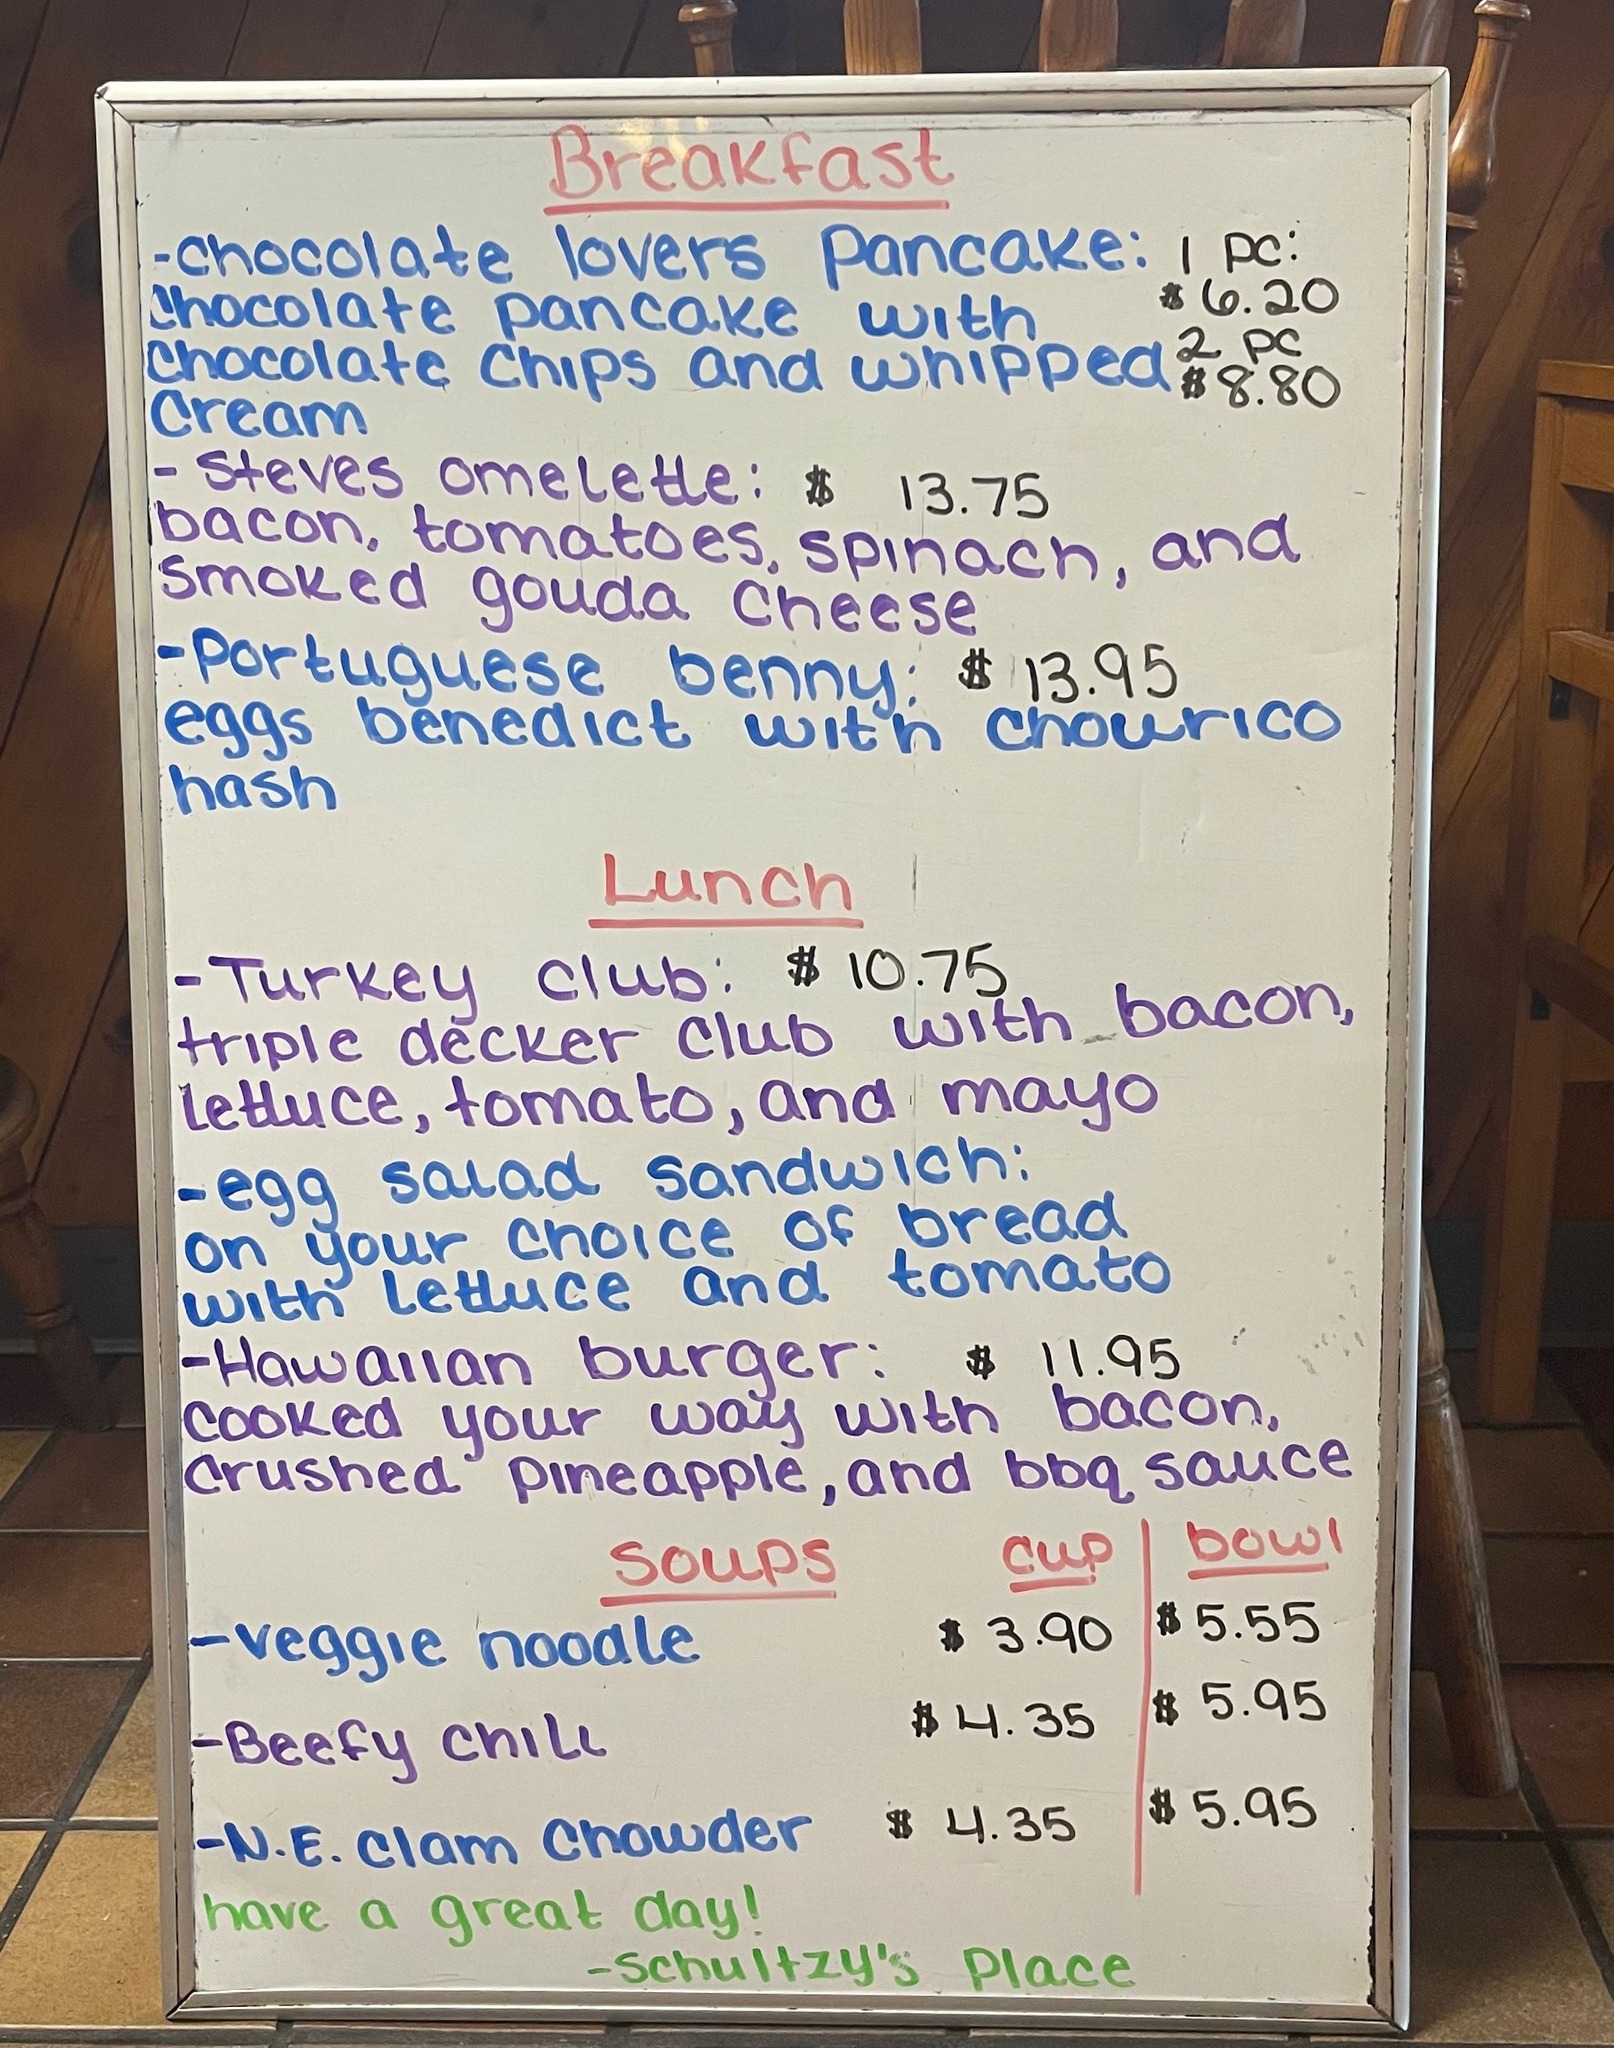 Breakfast
-chocolate lovers pancake: 1 pc:
chocolate pancake with $6.20
chocolate chips and whipped 2 pc
cream $8.80
- Steves omelette: $ 13.75
bacon, tomatoes, spinach, and
smoked gouda cheese
-Portuguese benny: $ 13.95
eggs benedict with chourico
hash
Lunch
-Turkey club: $ 10.75
triple decker club with bacon,
lettuce, tomato, and mayo
-egg salad sandwich:
on your choice of bread
with lettuce and tomato
-Hawaiian burger: $ 11.95
cooked your way with bacon,
crushed pineapple, and bbq sauce
Soups cup bowl
-veggie noodle $ 3.90 $ 5.55
-Beefy chili $ 4.35 $ 5.95
-N.E. clam chowder $ 4.35 $ 5.95
have a great day!
-Schultzy's Place